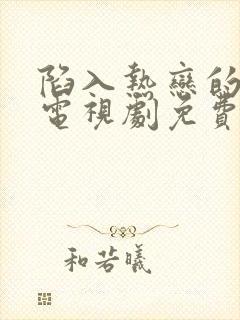 陷入熱戀的
電視劇免費
和若曦